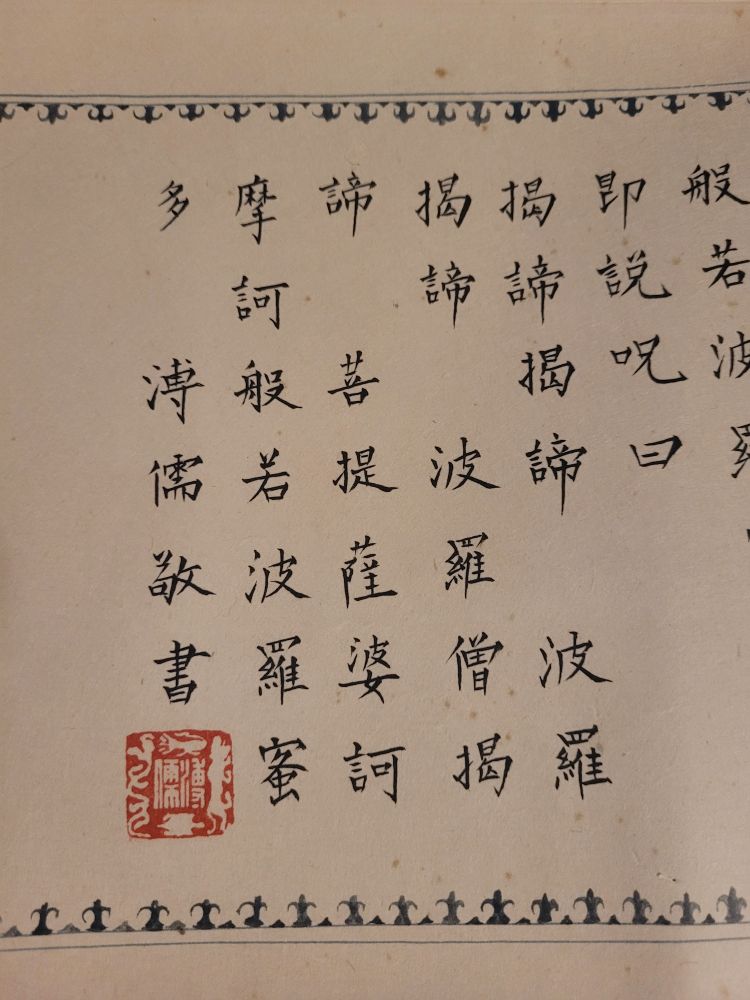 般若波羅
即說呪曰
揭諦揭諦 波羅
揭諦 波羅僧揭
諦 菩提薩婆訶
摩訶般若波羅蜜
多 溥儒敬書
溥儒